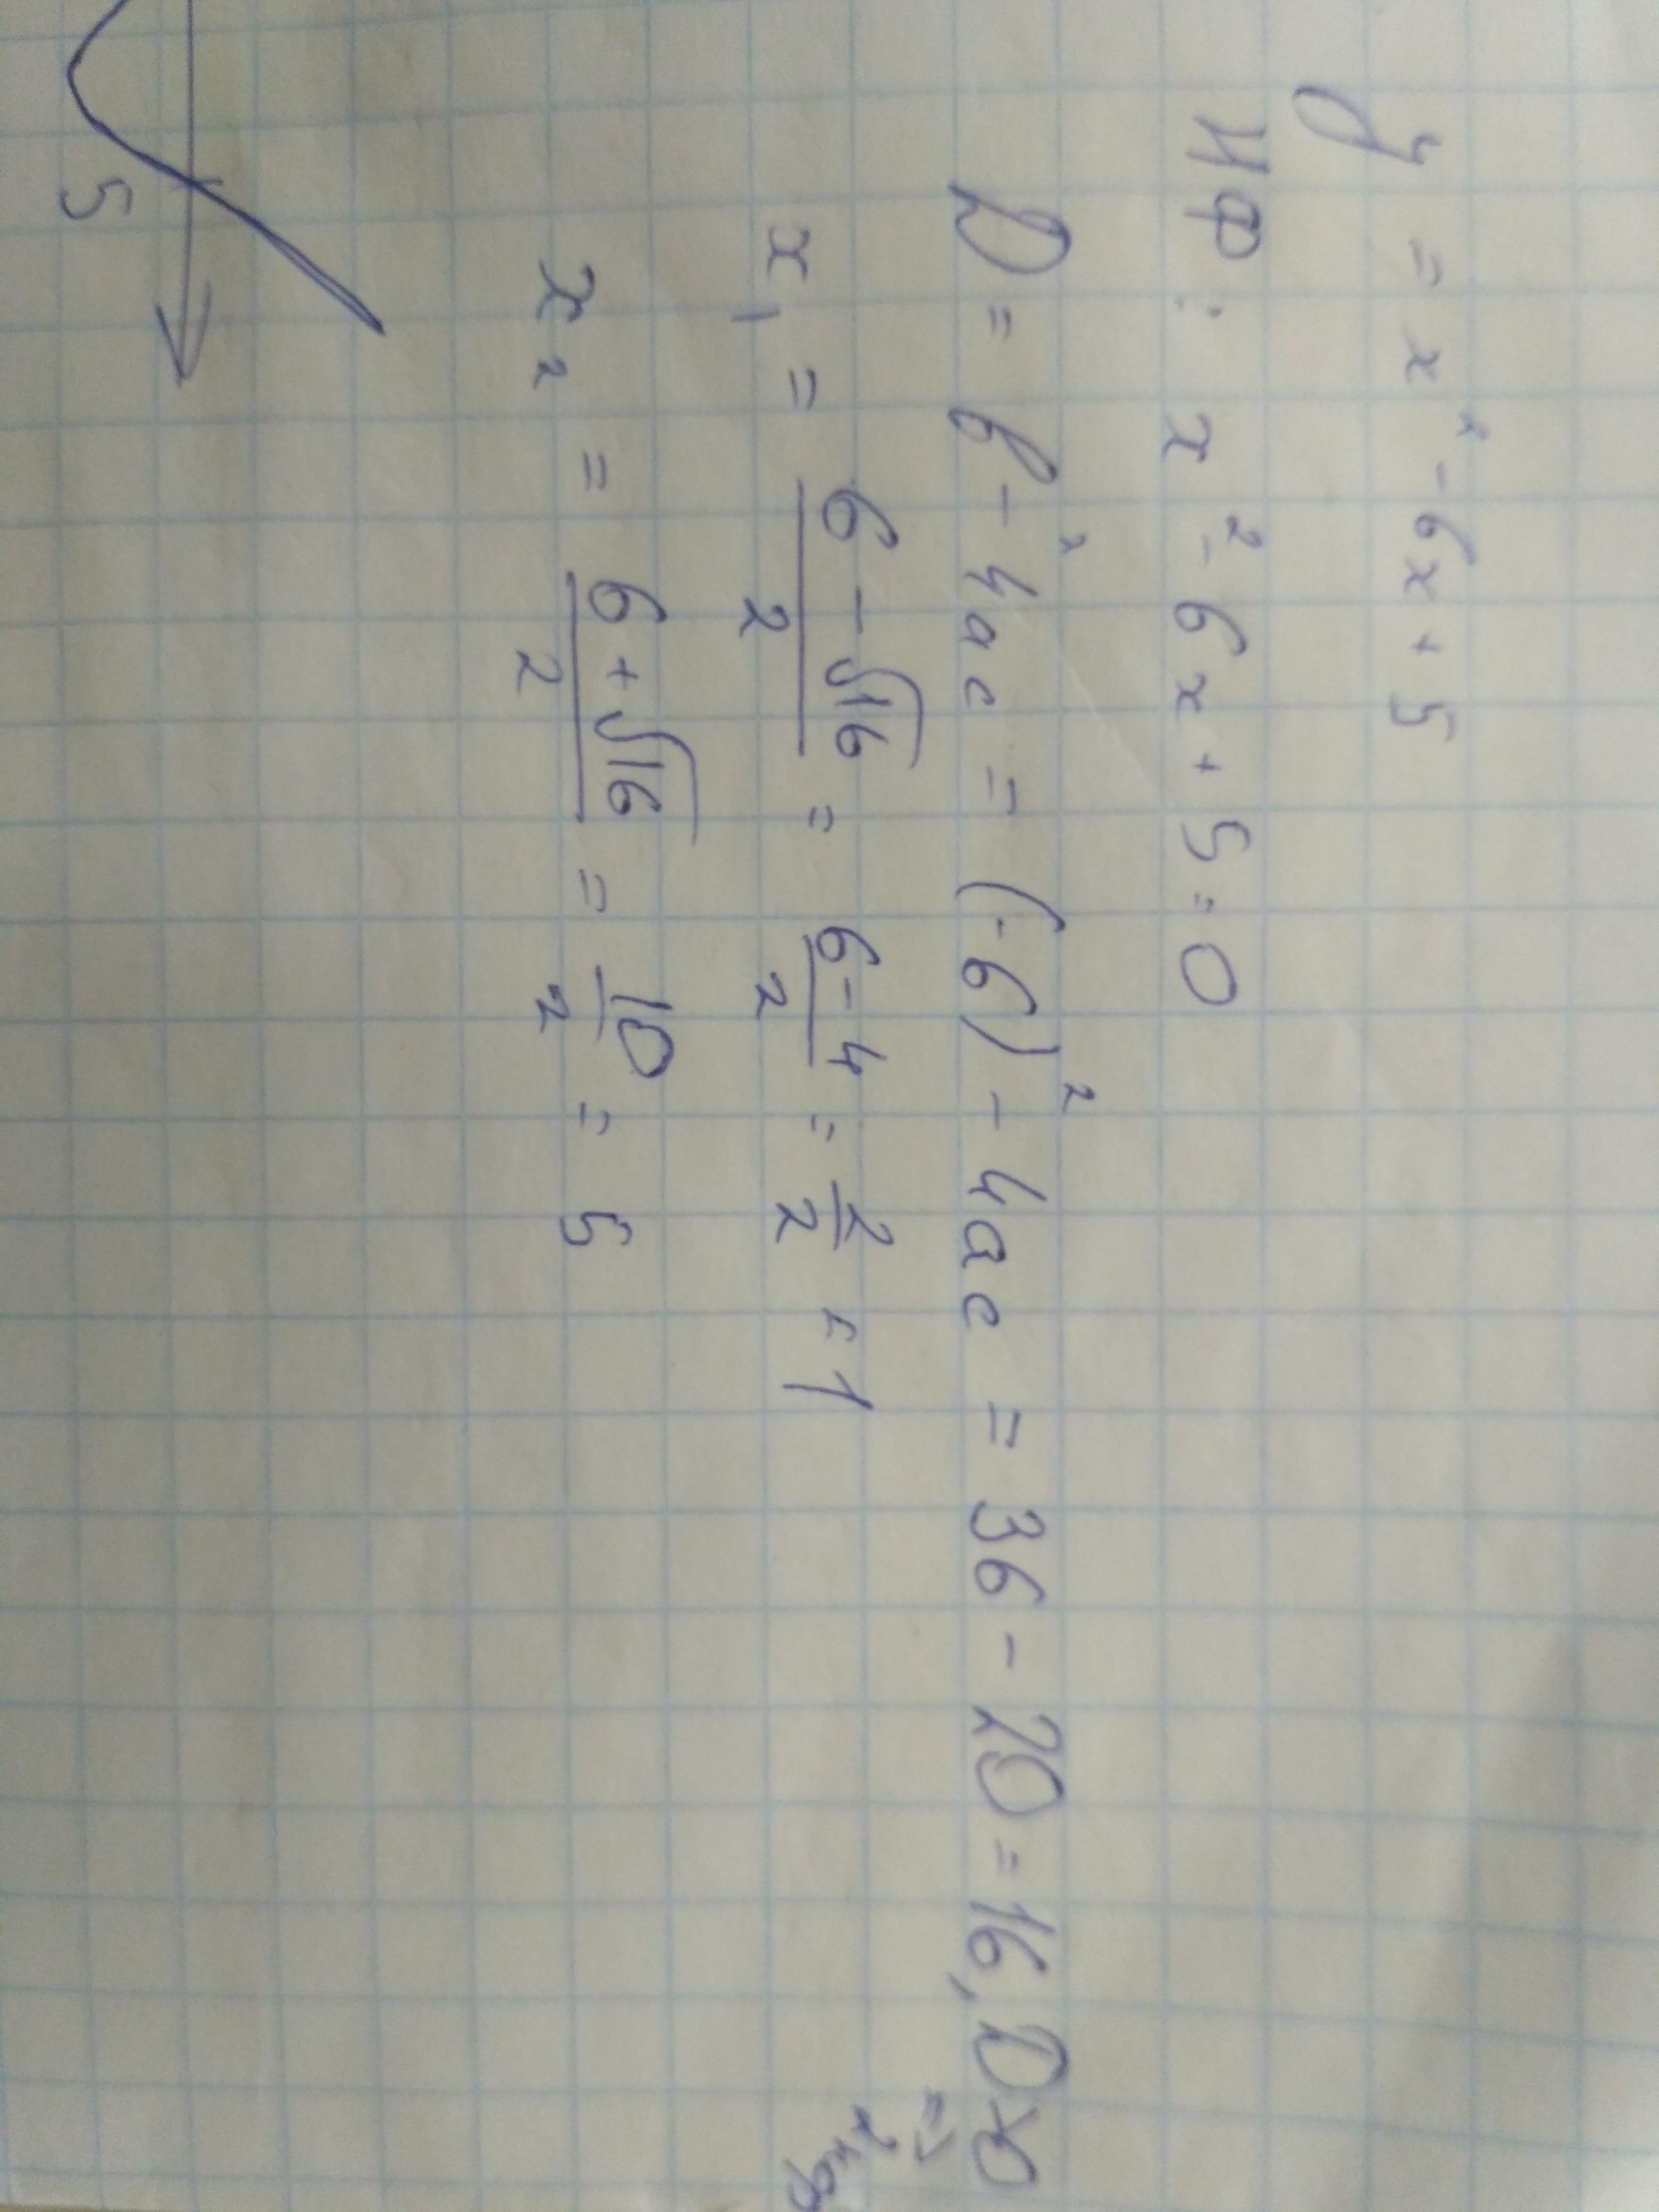 y = x² - 6x + 5
НФ: x² - 6x + 5 = 0
D = b² - 4ac = (-6)² - 4ac = 36 - 20 = 16, D>0
=>
x₁ = (6 - √16)/2 = (6-4)/2 = 2/2 = 1
x₂ = (6 + √16)/2 = 10/2 = 5
5